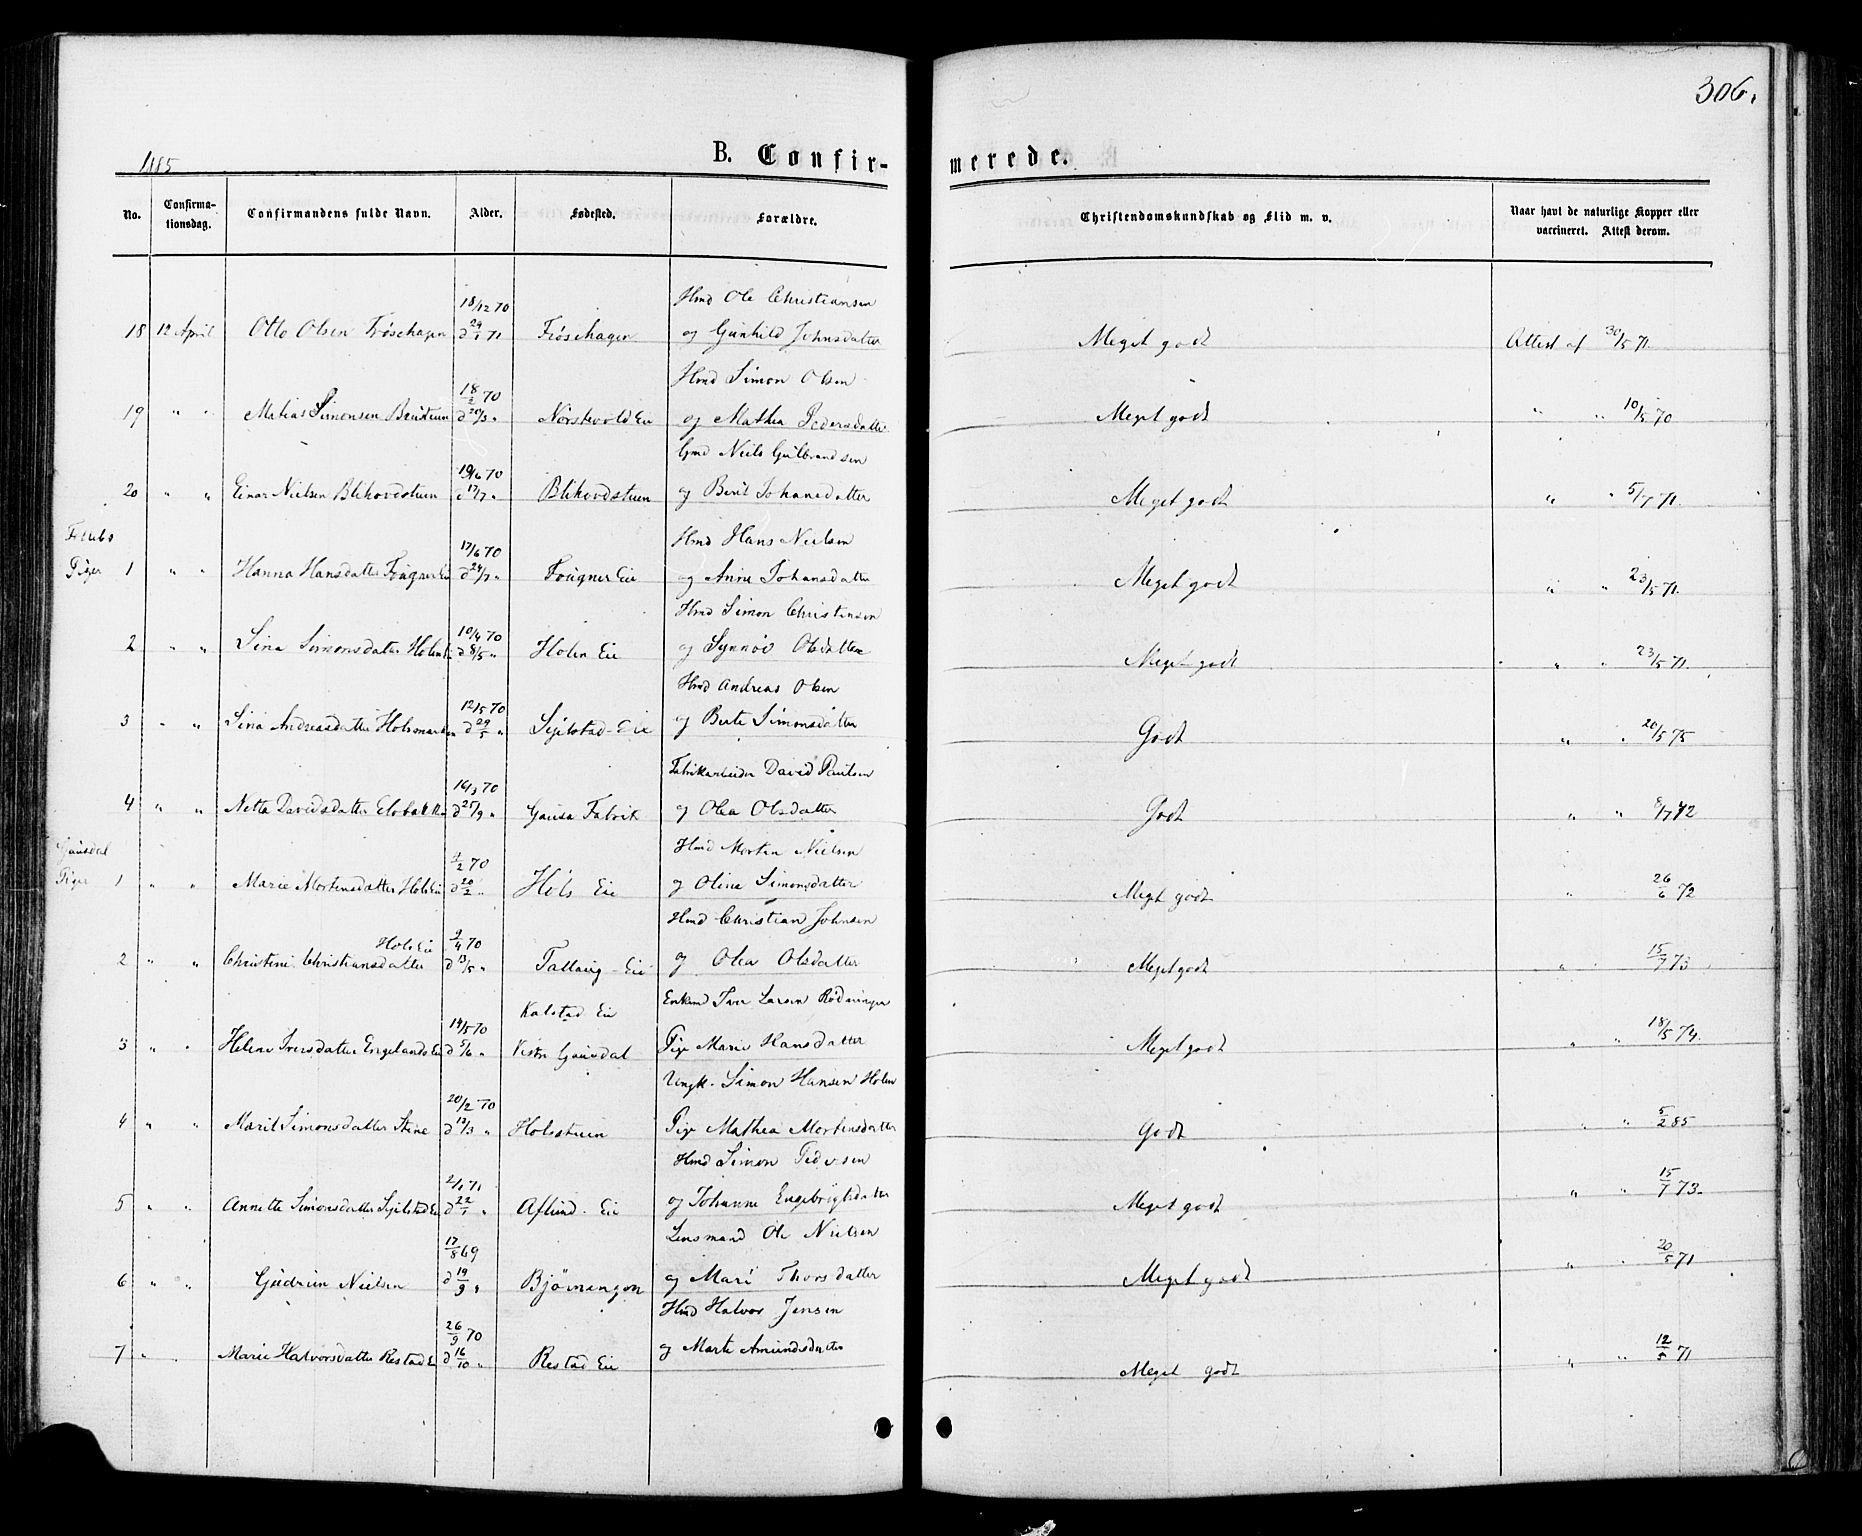 306.
1885
B. Confir-
merede.
No.
Confirma-
tionsdag.
Confirmandens fulde Navn.
Alder.
Fødested.
Forældre.
Christendomskundskab og Flid m. v.
Naar havt de naturlige Kopper eller
vaccineret. Attest derom.
18/12 70 Hmd Ole Christiansen
18 12 April Otto Olsen Frøsehagen d 29/1 71 Frøsehagen og Gunhild Johnsdatter Meget godt Attest af 30/5 71.
18/2 70 Hmd Simon Olsen
19 " " Matias Simonsen d 20/3 " Nørstevold Eie og Mathea Pedersdatter Meget godt " " 10/5 70
19/6 70 Gmd Niels Gulbrandsen
20 " " Einar Nielsen Blihovdstuen d 17/7 " Blihovdstuen og Berit Johansdatter Meget godt " " 5/7 71.
17/6 70 Hmd Hans Nielsen
Piger 1 " " Hanna Hansdatter Fougner Eie d 24/7 " Fougner Eie og Anne Johansdatter Meget godt " " 23/5 71.
10/4 70 Hmd Simon Christensen
2 " " Sina Simonsdatter d 8/5 " Holen Eie og Synnøv Olsdatter Meget godt " " 23/5 71.
12/5 70 Hmd Andreas Olsen
3 " " Sina Andreasdatter Holsmarken d 29/5 " Sijelstad-Eie og Berte Simonsdatter Godt " " 20/5 75
16/3 70 Fabrikarbeider David Paulsen
4 " " Netta Davidsdatter Elvbakken d 25/9 " Gausa Fabrik og Olea Olsdatter Godt " " 8/7 72
Gausdal /2 70 Hmd Morten Nielsen
Piger 1 " " Marie Mortensdatter Hols Eie d 20/2 " Hols Eie og Oline Simonsdatter Meget godt " 26/6 72
Hols Eie 9/4 70 Hmd Christian Johnsen
2 " " Christine Christiansdatter d 13/5 " Tallaug-Eie og Olea Olsdatter Meget godt " 15/7 73
14/5 70 Kalstad Eie Enkem Iver Larsen Rødninger
3 " " Helene Iversdatter Engelands Eie d 5/6 " Vestr Gausdal Pige Marie Hansdatter Meget godt " " 18/5 74.
20/2 70 Ungk. Simon Hansen Holen
4 " " Marit Simonsdatter Steine d 13/3 " Holsstuen Pige Mathea Mortensdatter Godt " " 5/2 85
2/1 71 Hmd Simon Pedersen
5 " " Annette Simonsdatter Sijelstad Eie d 22/1 " Aflund-Eie og Johanne Engebrigtsdatter Meget godt " " 15/7 73.
17/8 69 Lensmand Ole Nielsen
6 " " Gudrun Nielsen d 19/9 " Bjørnengen og Mari Thorsdatter Meget godt " " 20/5 71
26/9 70 Hmd Halvor Jensen
7 " " Marie Halvorsdatter Restad Eie d 16/10 " Restad Eie og Marte Amundsdatter Meget godt " " 12/5 71